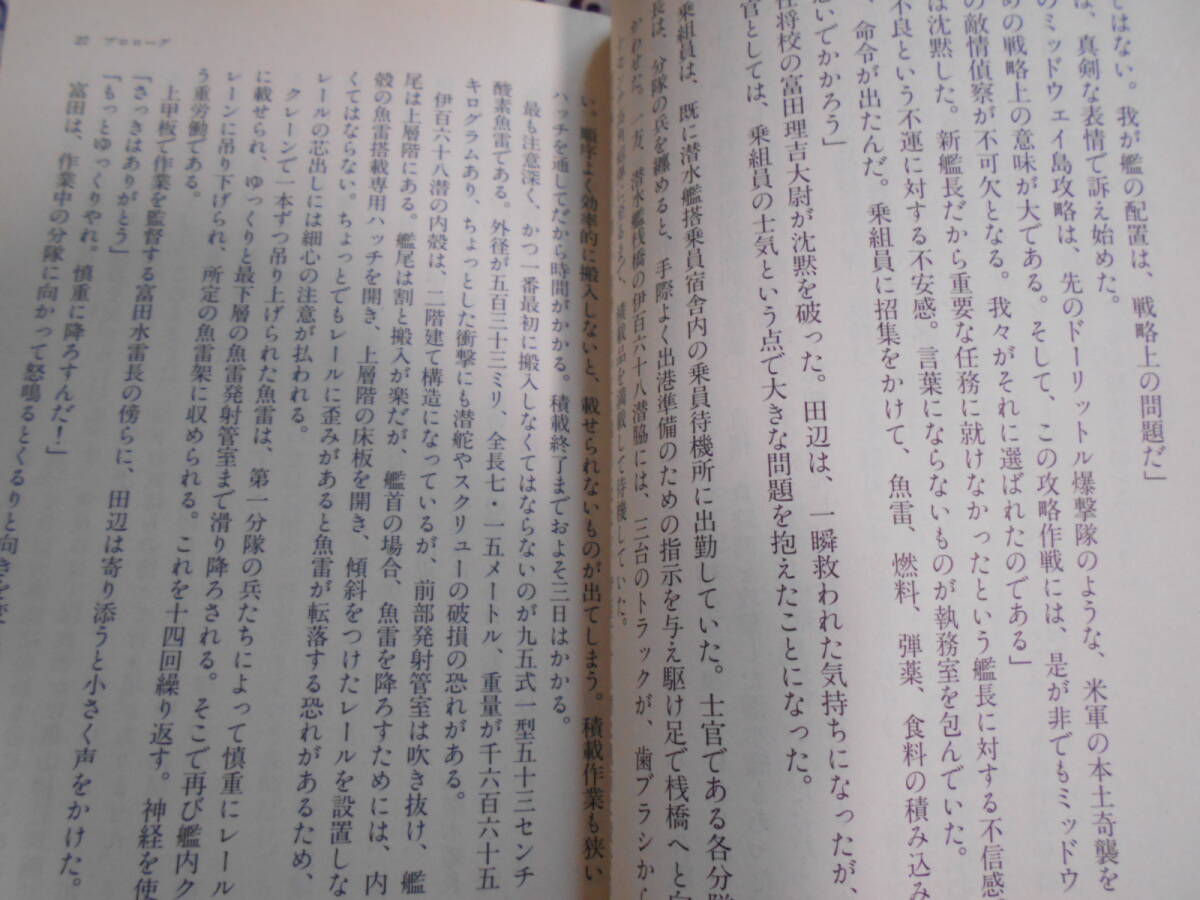 しはない。我が艦の配置は、戦略上の問題だ」
は、真剣な表情で訴え始めた。
のミッドウェイ島攻略は、先のドーリットル爆撃隊のような、米軍の本土奇襲を
めの戦略上の意味が大である。そして、この攻略作戦には、是が非でもミッドウ
の敵情偵察が不可欠となる。我々がそれに選ばれたのである」
は沈黙した。新艦長だから重要な任務に就けなかったという艦長に対する不信感
不良という不運に対する不安感。言葉にならないものが執務室を包んでいた。
、命令が出たんだ。乗組員に招集をかけて、魚雷、燃料、弾薬、食料の積み込み
急いでかかろう」
任将校の富田理吉大尉が沈黙を破った。田辺は、一瞬救われた気持ちになったが、
官としては、乗組員の士気という点で大きな問題を抱えたことになった。
乗組員は、既に潜水艦搭乗員宿舎内の乗員待機所に出勤していた。士官である各分隊
長は、分隊の兵を纏めると、手際よく出港準備のための指示を与え駆け足で桟橋へと向
かわせた。一方、潜水艦桟橋の伊百六十八潜脇には、三台のトラックが、歯ブラシから
積載品を満載して待機していた。
27 プロローグ
ハッチを通してだから時間がかかる。積載終了までおよそ三日はかかる。
い、順序よく効率的に搬入しないと、載せられないものが出てしまう。積載作業も狭い
最も注意深く、かつ一番最初に搬入しなくてはならないのが九五式一型五十三センチ
酸素魚雷である。外径が五百三十三ミリ、全長七・一五メートル、重量が千六百六十五
キログラムあり、ちょっとした衝撃にも潜舵やスクリューの破損の恐れがある。
伊百六十八潜の内殻は、二階建て構造になっているが、前部発射管室は吹き抜け、艦
尾は上層階にある。艦尾は割と搬入が楽だが、艦首の場合、魚雷を降ろすためには、内
殻の魚雷搭載専用ハッチを開き、上層階の床板を開き、傾斜をつけたレールを設置しな
くてはならない。ちょっとでもレールに歪みがあると魚雷が転落する恐れがあるため、
レールの芯出しには細心の注意が払われる。
クレーンで一本ずつ吊り上げられた魚雷は、第一分隊の兵たちによって慎重にレール
に載せられ、ゆっくりと最下層の魚雷発射管室まで滑り降ろされる。そこで再び艦内ク
レーンに吊り下げられ、所定の魚雷架に収められる。これを十四回繰り返す。神経を使
う重労働である。
上甲板で作業を監督する富田水雷長の傍らに、田辺は寄り添うと小さく声をかけた。
「さっきはありがとう」
「もっとゆっくりやれ。慎重に降ろすんだ！」
富田は、作業中の分隊に向かって怒鳴るとくるりと向きを変